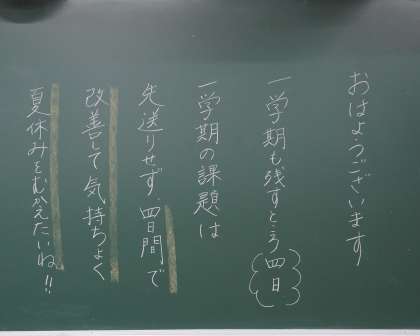 おはようございます
一学期も残すところ四日
一学期の課題は
先送りせず、四日間で
改善して気持ちよく
夏休みをむかえたいね!!